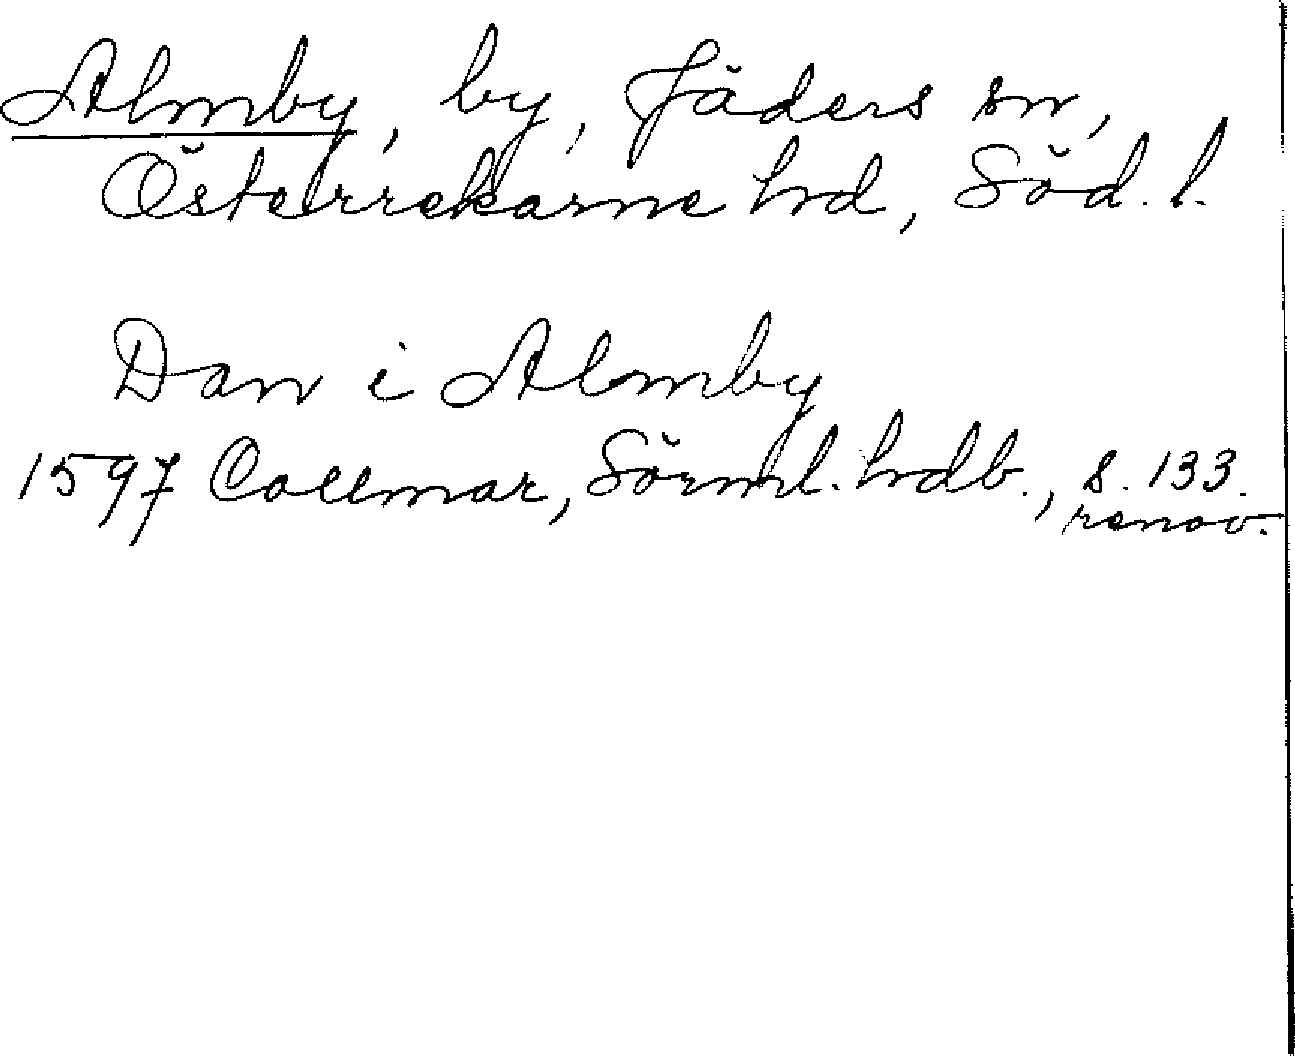 Almby, by, Jäders sn,
Österrekarne hd, Söd. l.
Dan i Almby
1597 Collmar, Sörml. hdb., s. 133.
renov.